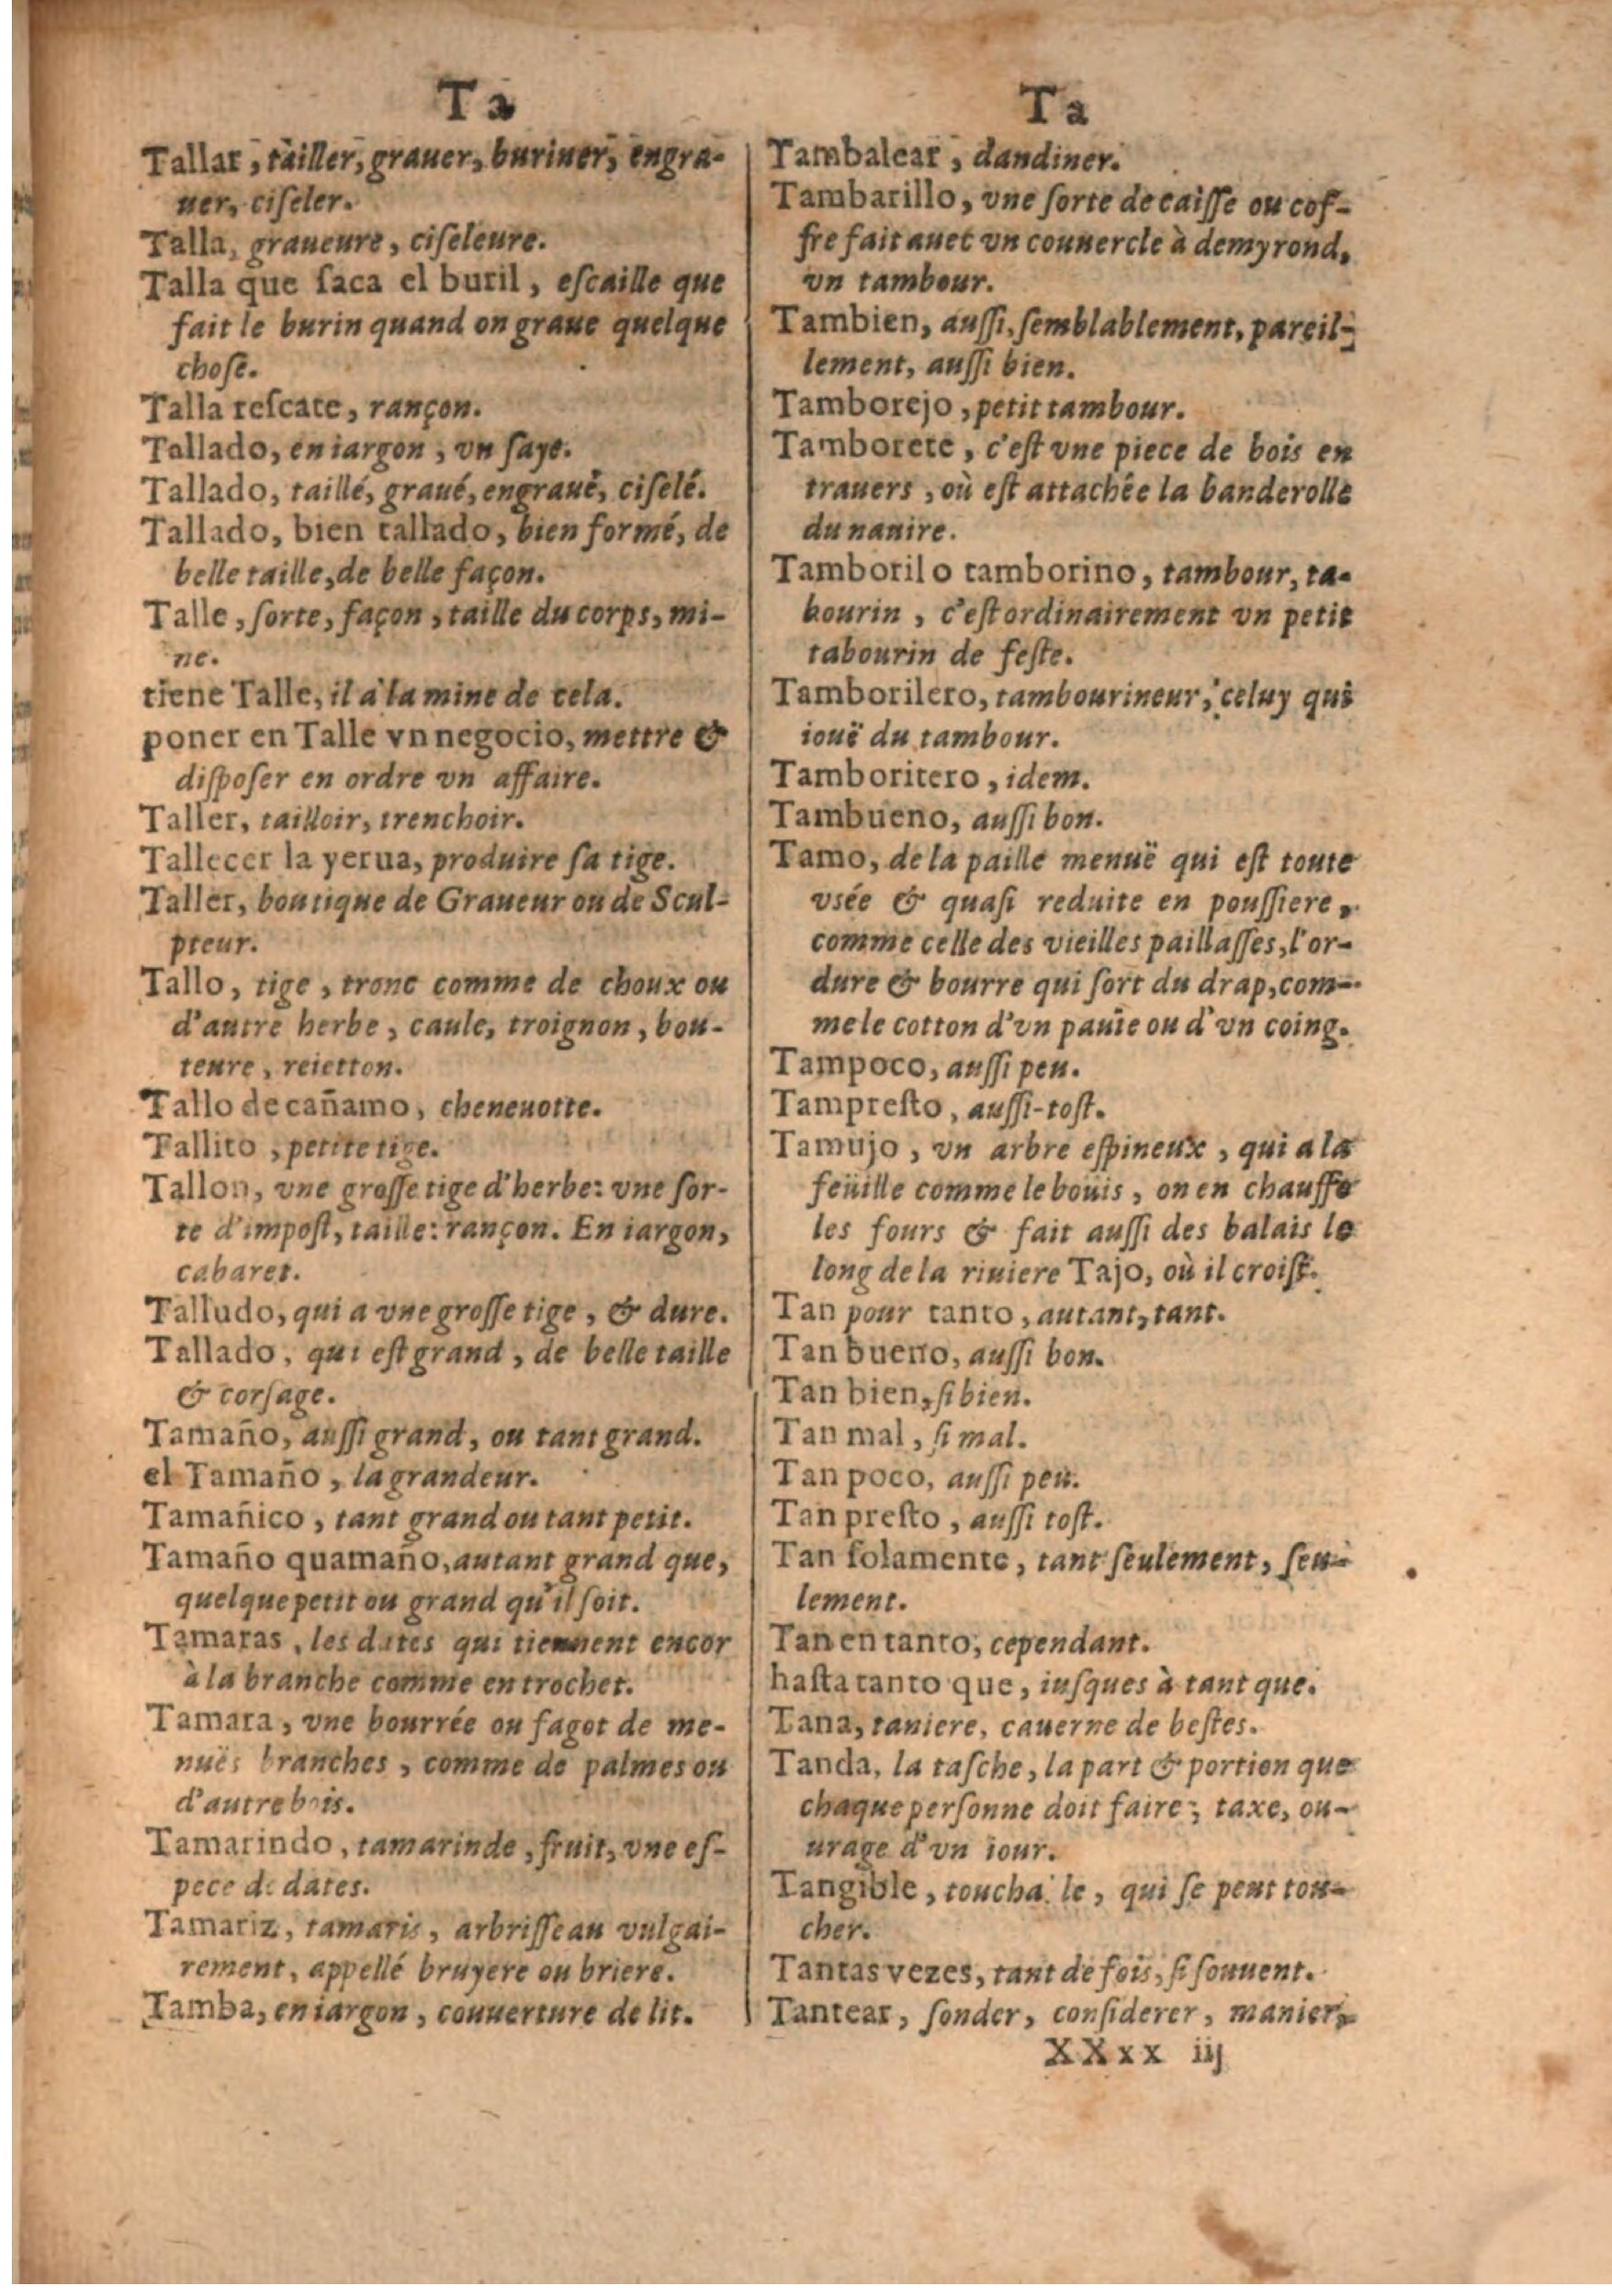 Ta
Tallar, tailler, grauer, buriner, engra-
uer, ciſeler.
Talla, graueure, ciſeleure.
Talla que ſaca el buril, eſcaille que
fait le burin quand on graue quelque
choſe.
Talla reſcate, rançon.
Tallado, en iargon, vn ſaye.
Tallado, taillé, graué, engraué, ciſelé.
Tallado, bien tallado, bien formé, de
belle taille, de belle façon.
Talle, ſorte, façon, taille du corps, mi-
ne.
tiene Talle, il a la mine de cela.
poner en Talle vn negocio, mettre &
diſpoſer en ordre vn affaire.
Taller, tailloir, trenchoir.
Tallecer la yerua, produire ſa tige.
Taller, boutique de Graueur ou de Scul-
pteur.
Tallo, tige, tronc comme de choux ou
d'autre herbe, caule, troignon, bou-
teure, reietton.
Tallo de cañamo, cheneuotte.
Tallito, petite tige.
Tallon, vne groſſe tige d'herbe: vne ſor-
te d'impoſt, taille: rançon. En iargon,
cabaret.
Talludo, qui a vne groſſe tige, & dure.
Tallado, qui eſt grand, de belle taille
& corſage.
Tamaño, auſſi grand, ou tant grand.
el Tamaño, la grandeur.
Tamañico, tant grand ou tant petit.
Tamaño quamaño, autant grand que,
quelque petit ou grand qu'il ſoit.
Tamaras, les dates qui tiennent encor
à la branche comme en trochet.
Tamara, vne bourrée ou fagot de me-
nuës branches, comme de palmes ou
d'autre bois.
Tamarindo, tamarinde, fruit, vne eſ-
pece de dates.
Tamariz, tamaris, arbriſſeau vulgai-
rement, appellé bruyere ou briere.
Tamba, en iargon, couuerture de lit.
Ta
Tambalear, dandiner.
Tambarillo, vne ſorte de caiſſe ou cof-
fre fait auec vn couuercle à demy rond,
vn tambour.
Tambien, auſſi, ſemblablement, pareil-
lement, auſſi bien.
Tamborejo, petit tambour.
Tamborete, c'eſt vne piece de bois en
trauers, où eſt attachée la banderolle
du nauire.
Tamboril o tamborino, tambour, ta-
bourin, c'eſt ordinairement vn petit
tabourin de feſte.
Tamborilero, tambourineur, celuy qui
iouë du tambour.
Tamboritero, idem.
Tambueno, auſſi bon.
Tamo, de la paille menuë qui eſt toute
vsée & quaſi reduite en pouſſiere,
comme celle des vieilles paillaſſes, l'or-
dure & bourre qui ſort du drap, com-
me le cotton d'vn pauie ou d'vn coing.
Tampoco, auſſi peu.
Tampreſto, auſſi-toſt.
Tamujo, vn arbre eſpineux, qui a la
feüille comme le boüis, on en chauffe
les fours & fait auſſi des balais le
long de la riuiere Tajo, où il croiſt.
Tan pour tanto, autant, tant.
Tan bueno, auſſi bon.
Tan bien, ſi bien.
Tan mal, ſi mal.
Tan poco, auſſi peu.
Tan preſto, auſſi toſt.
Tan ſolamente, tant ſeulement, ſeu-
lement.
Tan en tanto, cependant.
haſta tanto que, iuſques à tant que.
Tana, taniere, cauerne de beſtes.
Tanda, la taſche, la part & portion que
chaque perſonne doit faire, taxe, ou-
urage d'vn iour.
Tangible, touchable, qui ſe peut tou-
cher.
Tantas vezes, tant de fois, ſi ſouuent.
Tantear, ſonder, conſiderer, manier,
XXxx iij